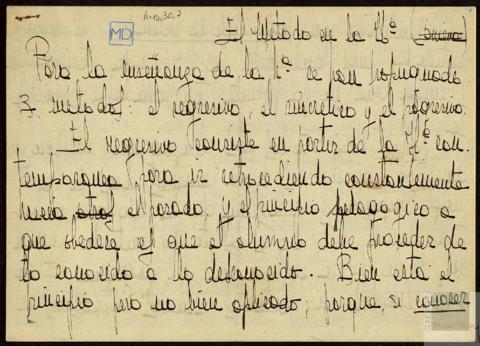 Ano, 30, 7
MD
El Método en la Hª (
Para la enseñanza de la Hª se han propugnado
3 métodos: el regresivo, el sincrético y el progresivo.
El regresivo consiste en partir de la Hª con-
temporanea para ir retrocediendo constantemente
hacia otros el pasado, y el principio pedagógico a
que obedece es que el alumno debe proceder de
lo conocido a lo desconocido. Bien está el
principio pero no bien aplicado, porque, si conocer